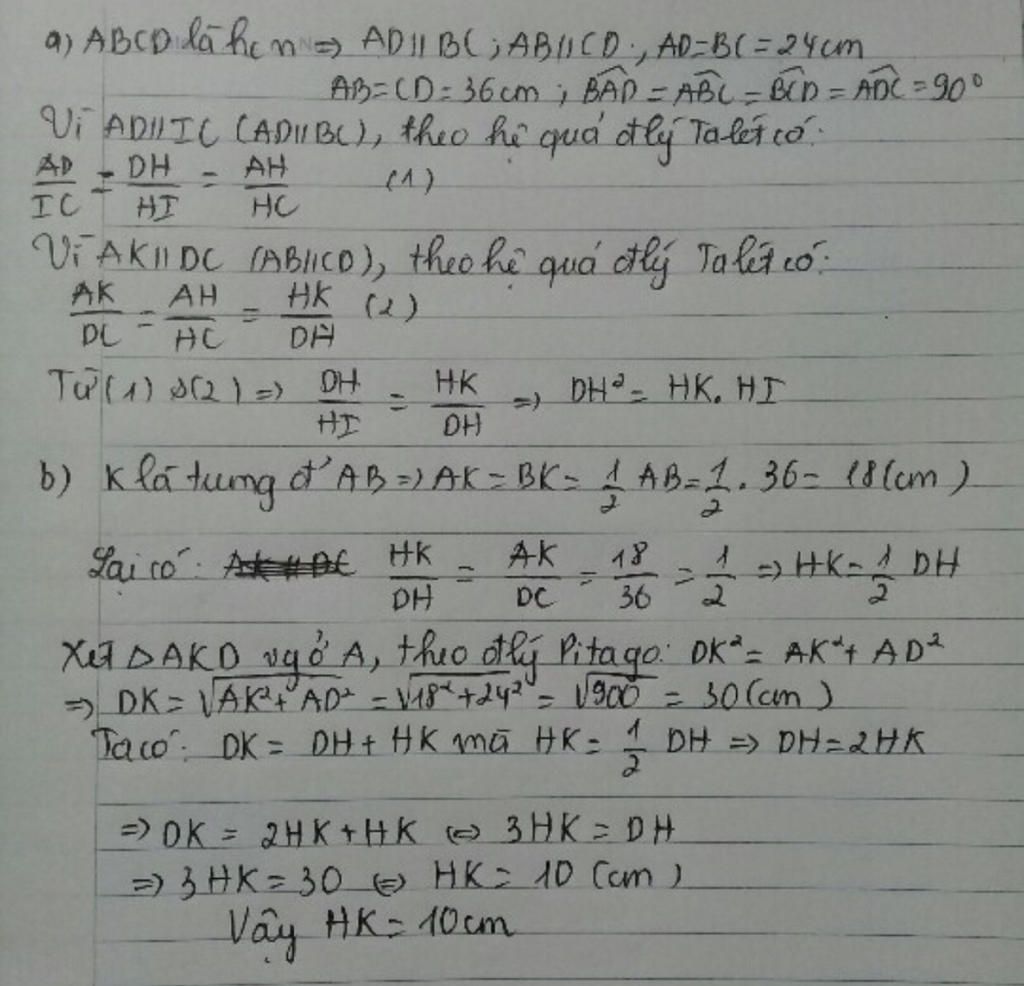 a) ABCD là hcn => AD // BC ; AB // CD ; AD = BC = 24cm
AB = CD = 36cm ; BAD = ABC = BCD = ADC = 90°
Vì AD // IC (AD // BC), theo hệ quả đlý Ta lét có:
AD/IC = DH/HI = AH/HC (1)
Vì AK // DC (AB // CD), theo hệ quả đlý Ta lét có:
AK/DC = AH/HC = HK/DH (2)
Từ (1) &(2) => DH/HI = HK/DH => DH² = HK. HI
b) K là tung đ' AB => AK = BK = 1/2 AB = 1/2 . 36 = 18(cm)
Lại có: HK/DH = AK/DC = 18/36 = 1/2 => HK = 1/2 DH
Xét △AKD vg ở A, theo đlý Pitago: DK² = AK² + AD²
=> DK = √AK² + AD² = √18² + 24² = √900 = 30 (cm)
Ta có: DK = DH + HK mà HK = 1/2 DH => DH = 2HK
=> DK = 2HK + HK <=> 3HK = DH
=> 3HK = 30 <=> HK = 10 (cm)
Vậy HK = 10cm